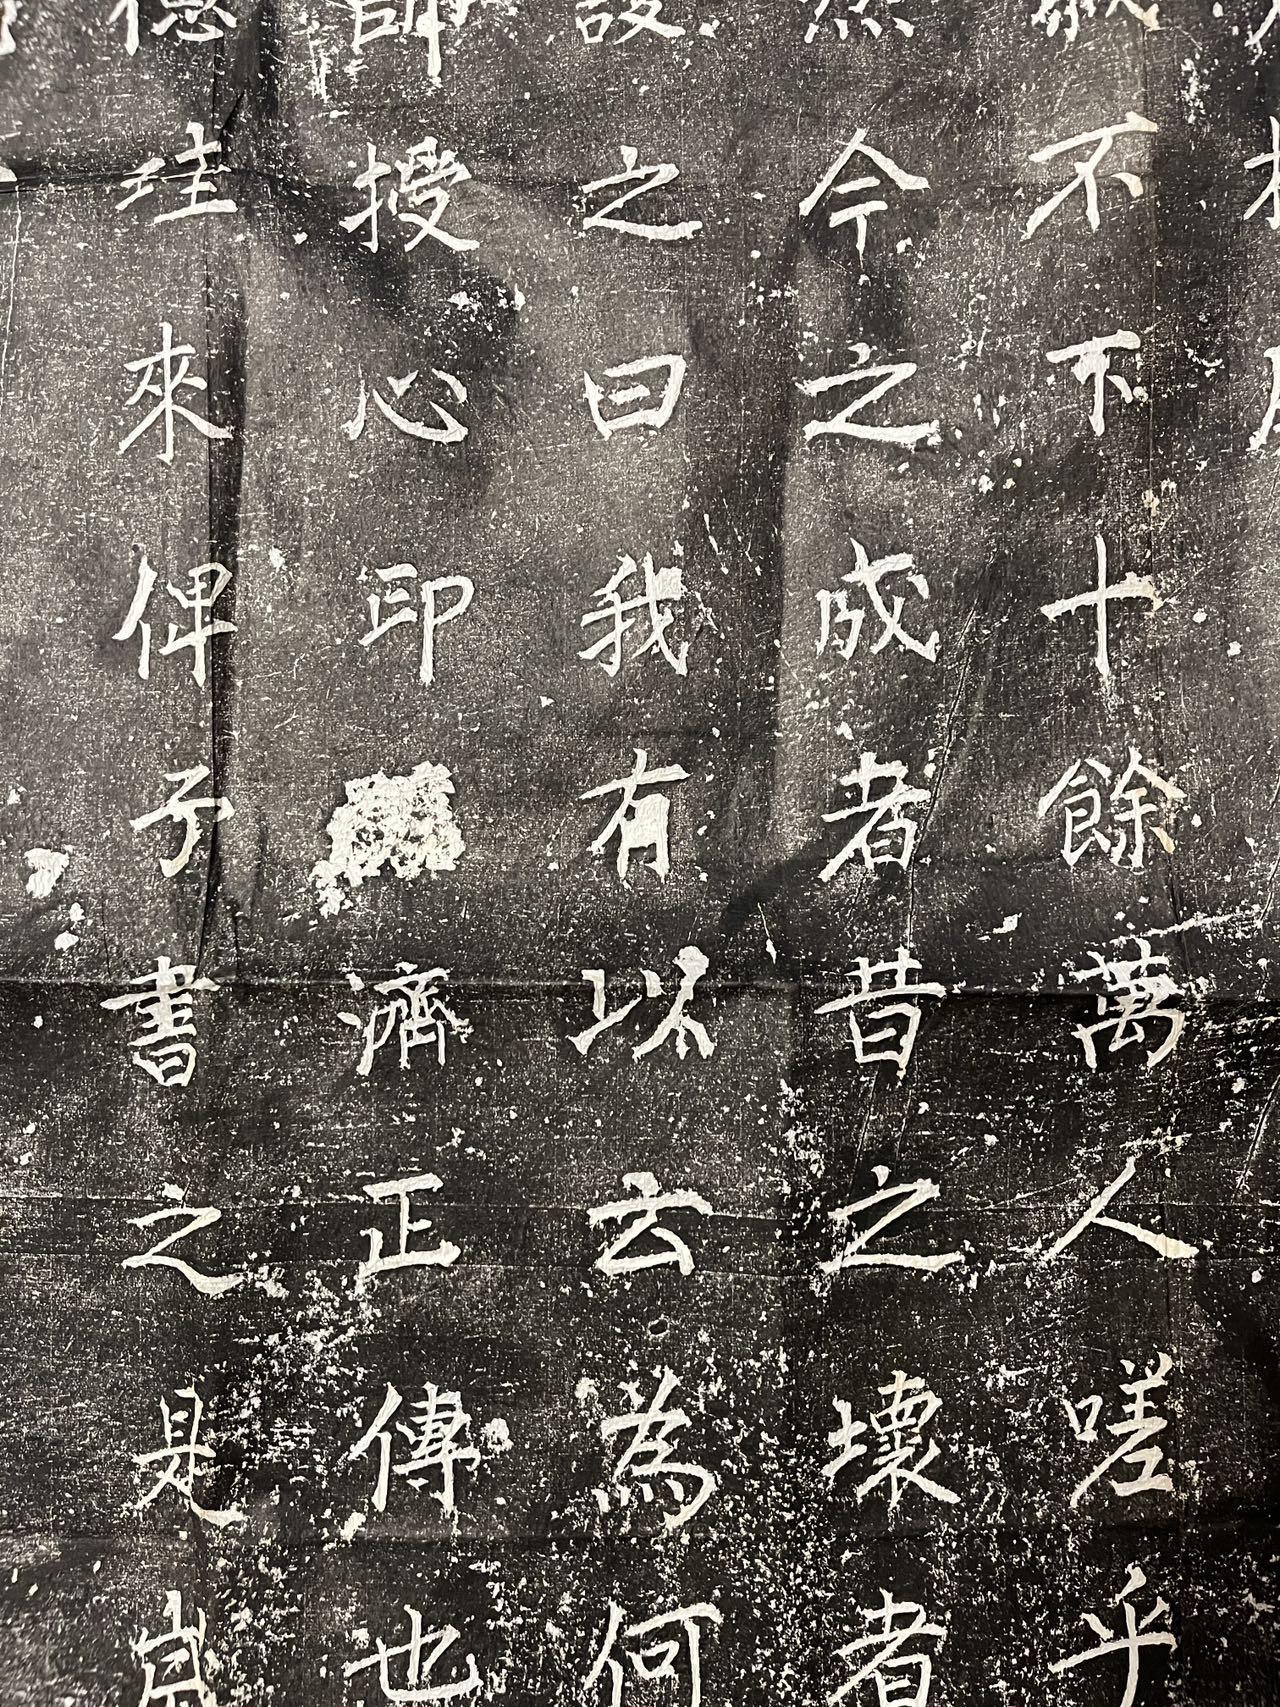 不下十餘萬人嗟乎
今之成者昔之壞者
之曰我有以云為何
師授心印濟正傳也
德珪來俾予書之是歲